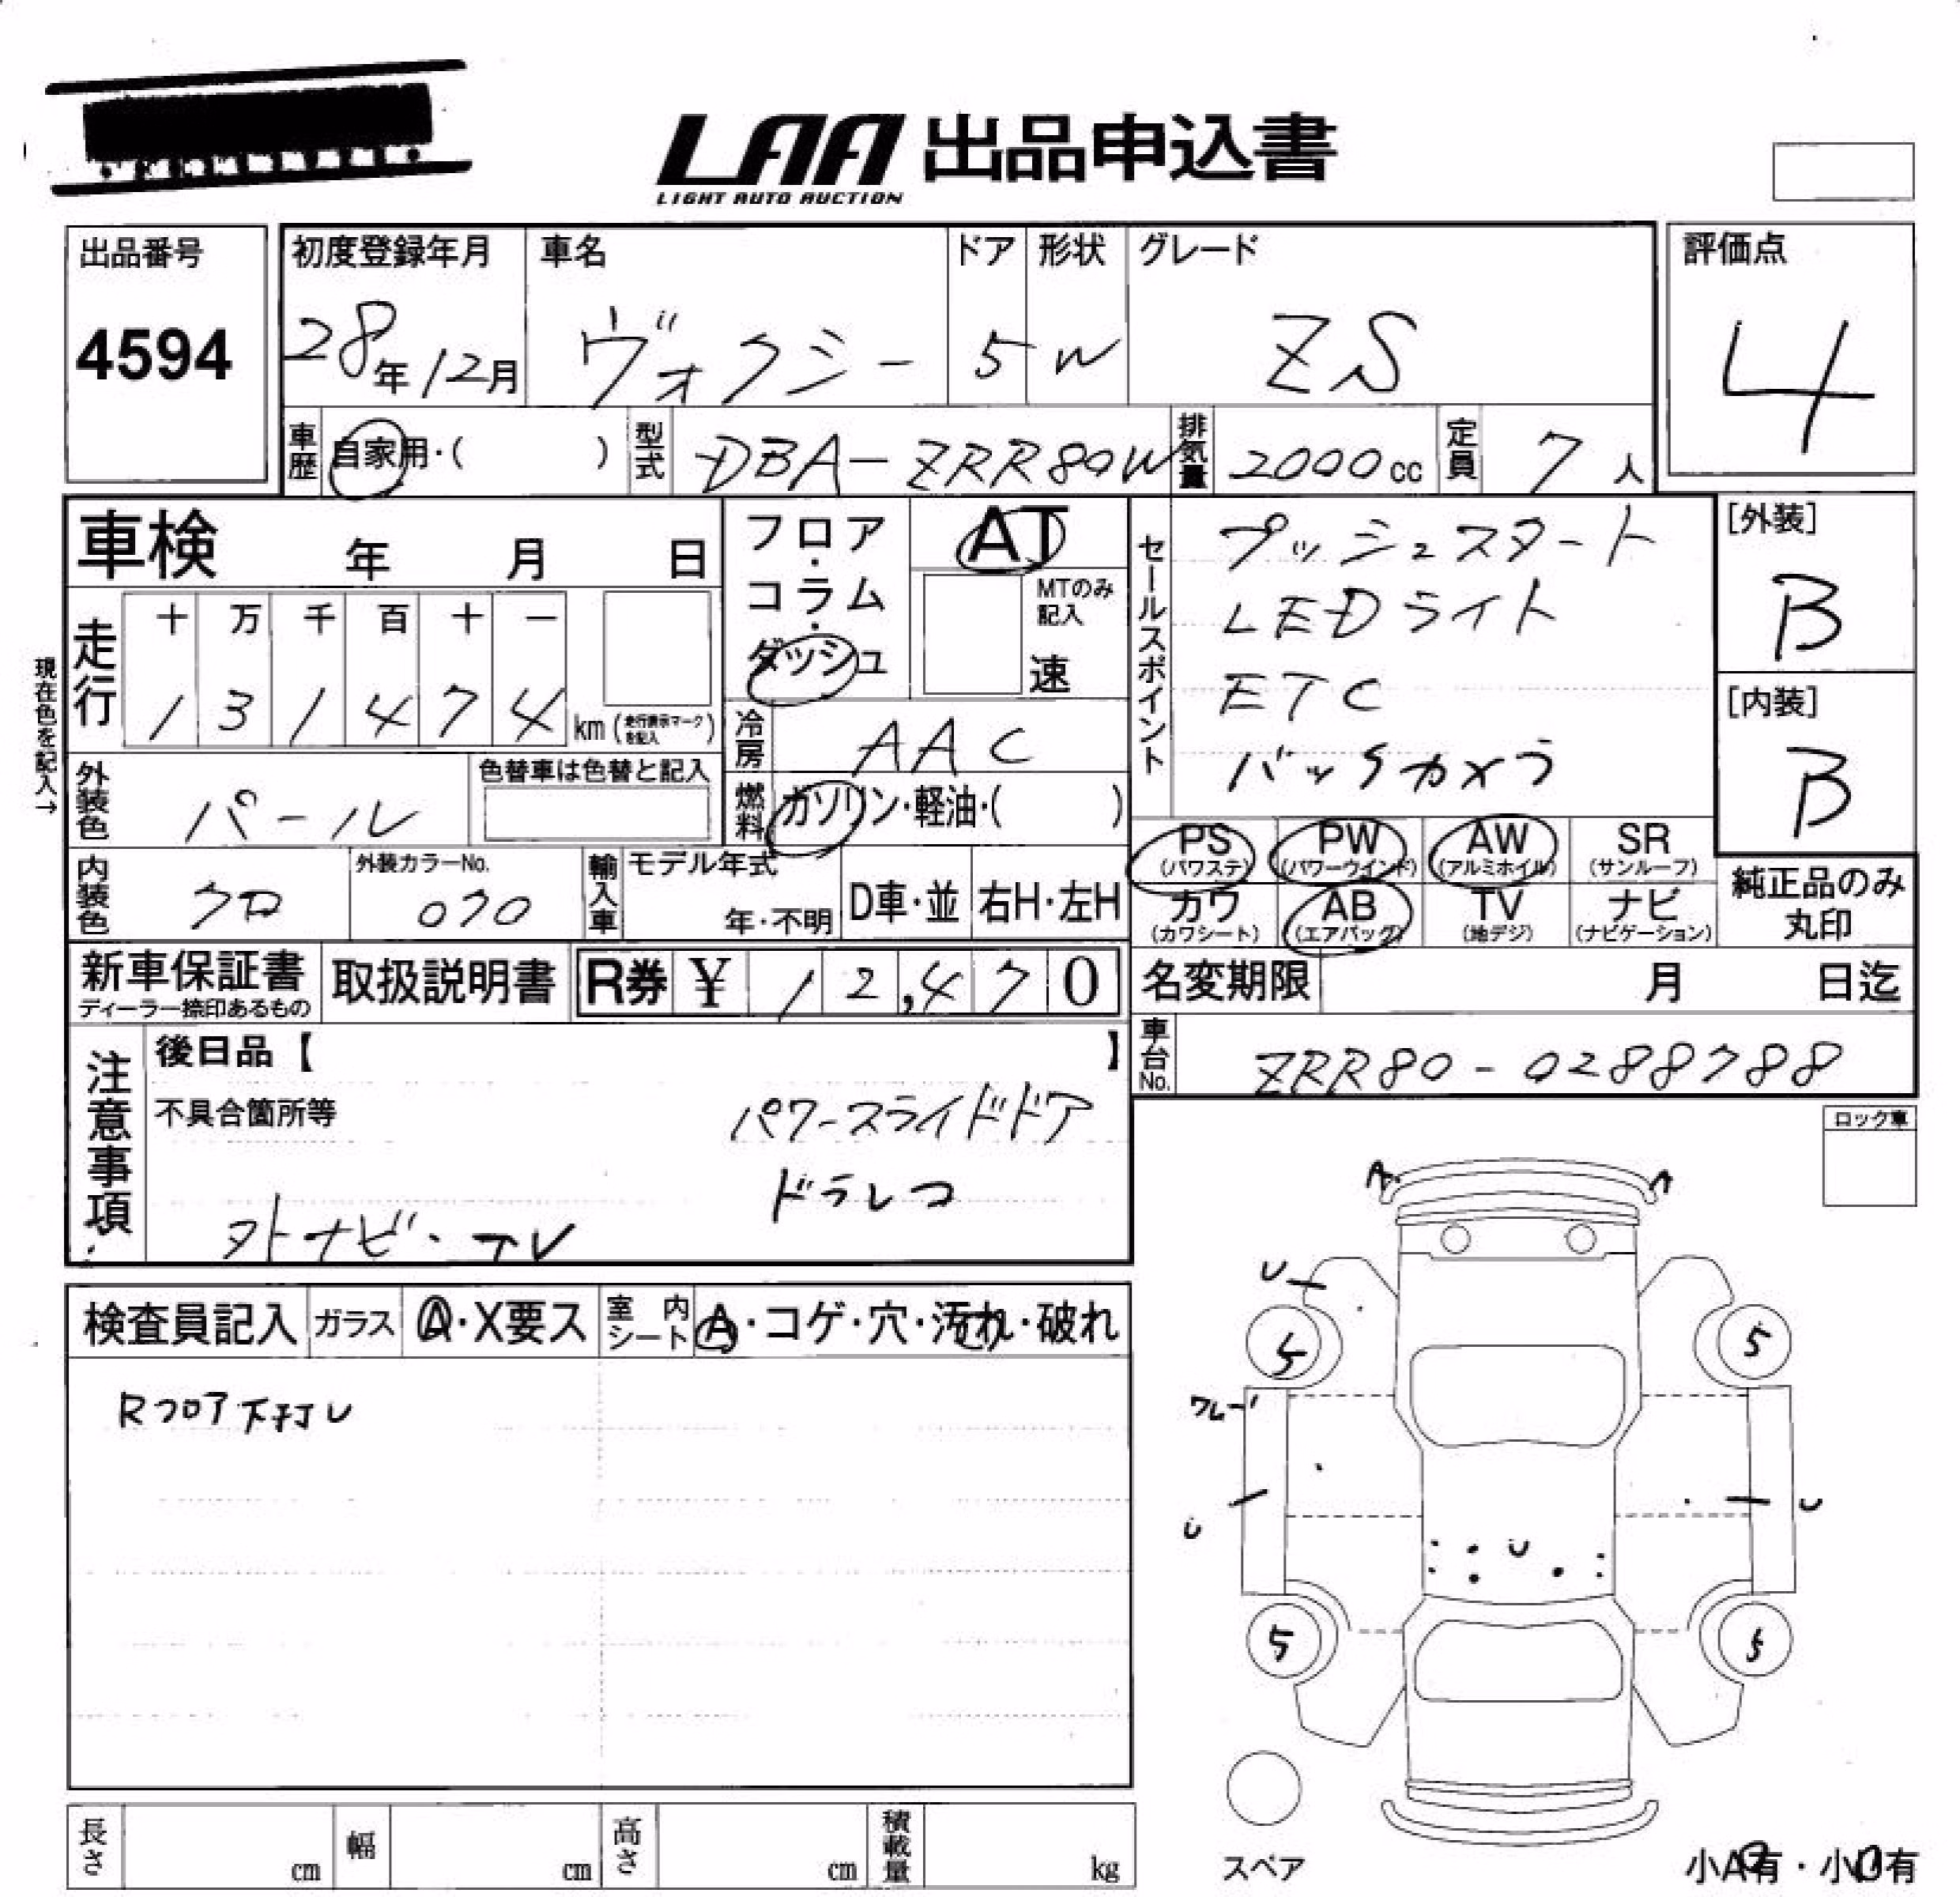 LAA 出品申込書
LIGHT AUTO AUCTION
出品番号
4594
初度登録年月
28年12月
車名
ヴォクシー
ドア
5
形状
W
グレード
ZS
評価点
4
車歴
自家用・( )
型式
DBA-ZRR80W
排気量
2000cc
定員
7人
車検 年 月 日
走行
十 万 千 百 十 一
1 3 1 4 7 4 km (走行表示マークを記入)
現在色を記入→
外装色
パール
色替車は色替と記入
内装色
クロ
外装カラーNo.
070
輸入車
モデル年式
年・不明
D車・並
右H・左H
フロア・コラム・ダッシュ
AT
MTのみ記入
速
冷房
AAC
燃料
ガソリン・軽油・( )
セールスポイント
プッシュスタート
LEDライト
ETC
バックカメラ
[外装]
B
[内装]
B
PS (パワステ)
PW (パワーウインド)
AW (アルミホイル)
SR (サンルーフ)
カワ (カワシート)
AB (エアバッグ)
TV (地デジ)
ナビ (ナビゲーション)
純正品のみ丸印
新車保証書
ディーラー捺印あるもの
取扱説明書
R券 ¥ 12,470
名変期限 月 日迄
車台No.
ZRR80-0288788
注意事項
後日品【 】
不具合箇所等
パワースライドドア
ドラレコ
外ナビ・TV
ロック車
検査員記入
ガラス
A・X要ス
室内シート
A・コゲ・穴・汚れ・破れ
Rフロア下打U
A
A
U
5
5
ワレ
U
U
U
5
5
スペア
小A有・小U有
長さ cm
幅 cm
高さ cm
積載量 kg